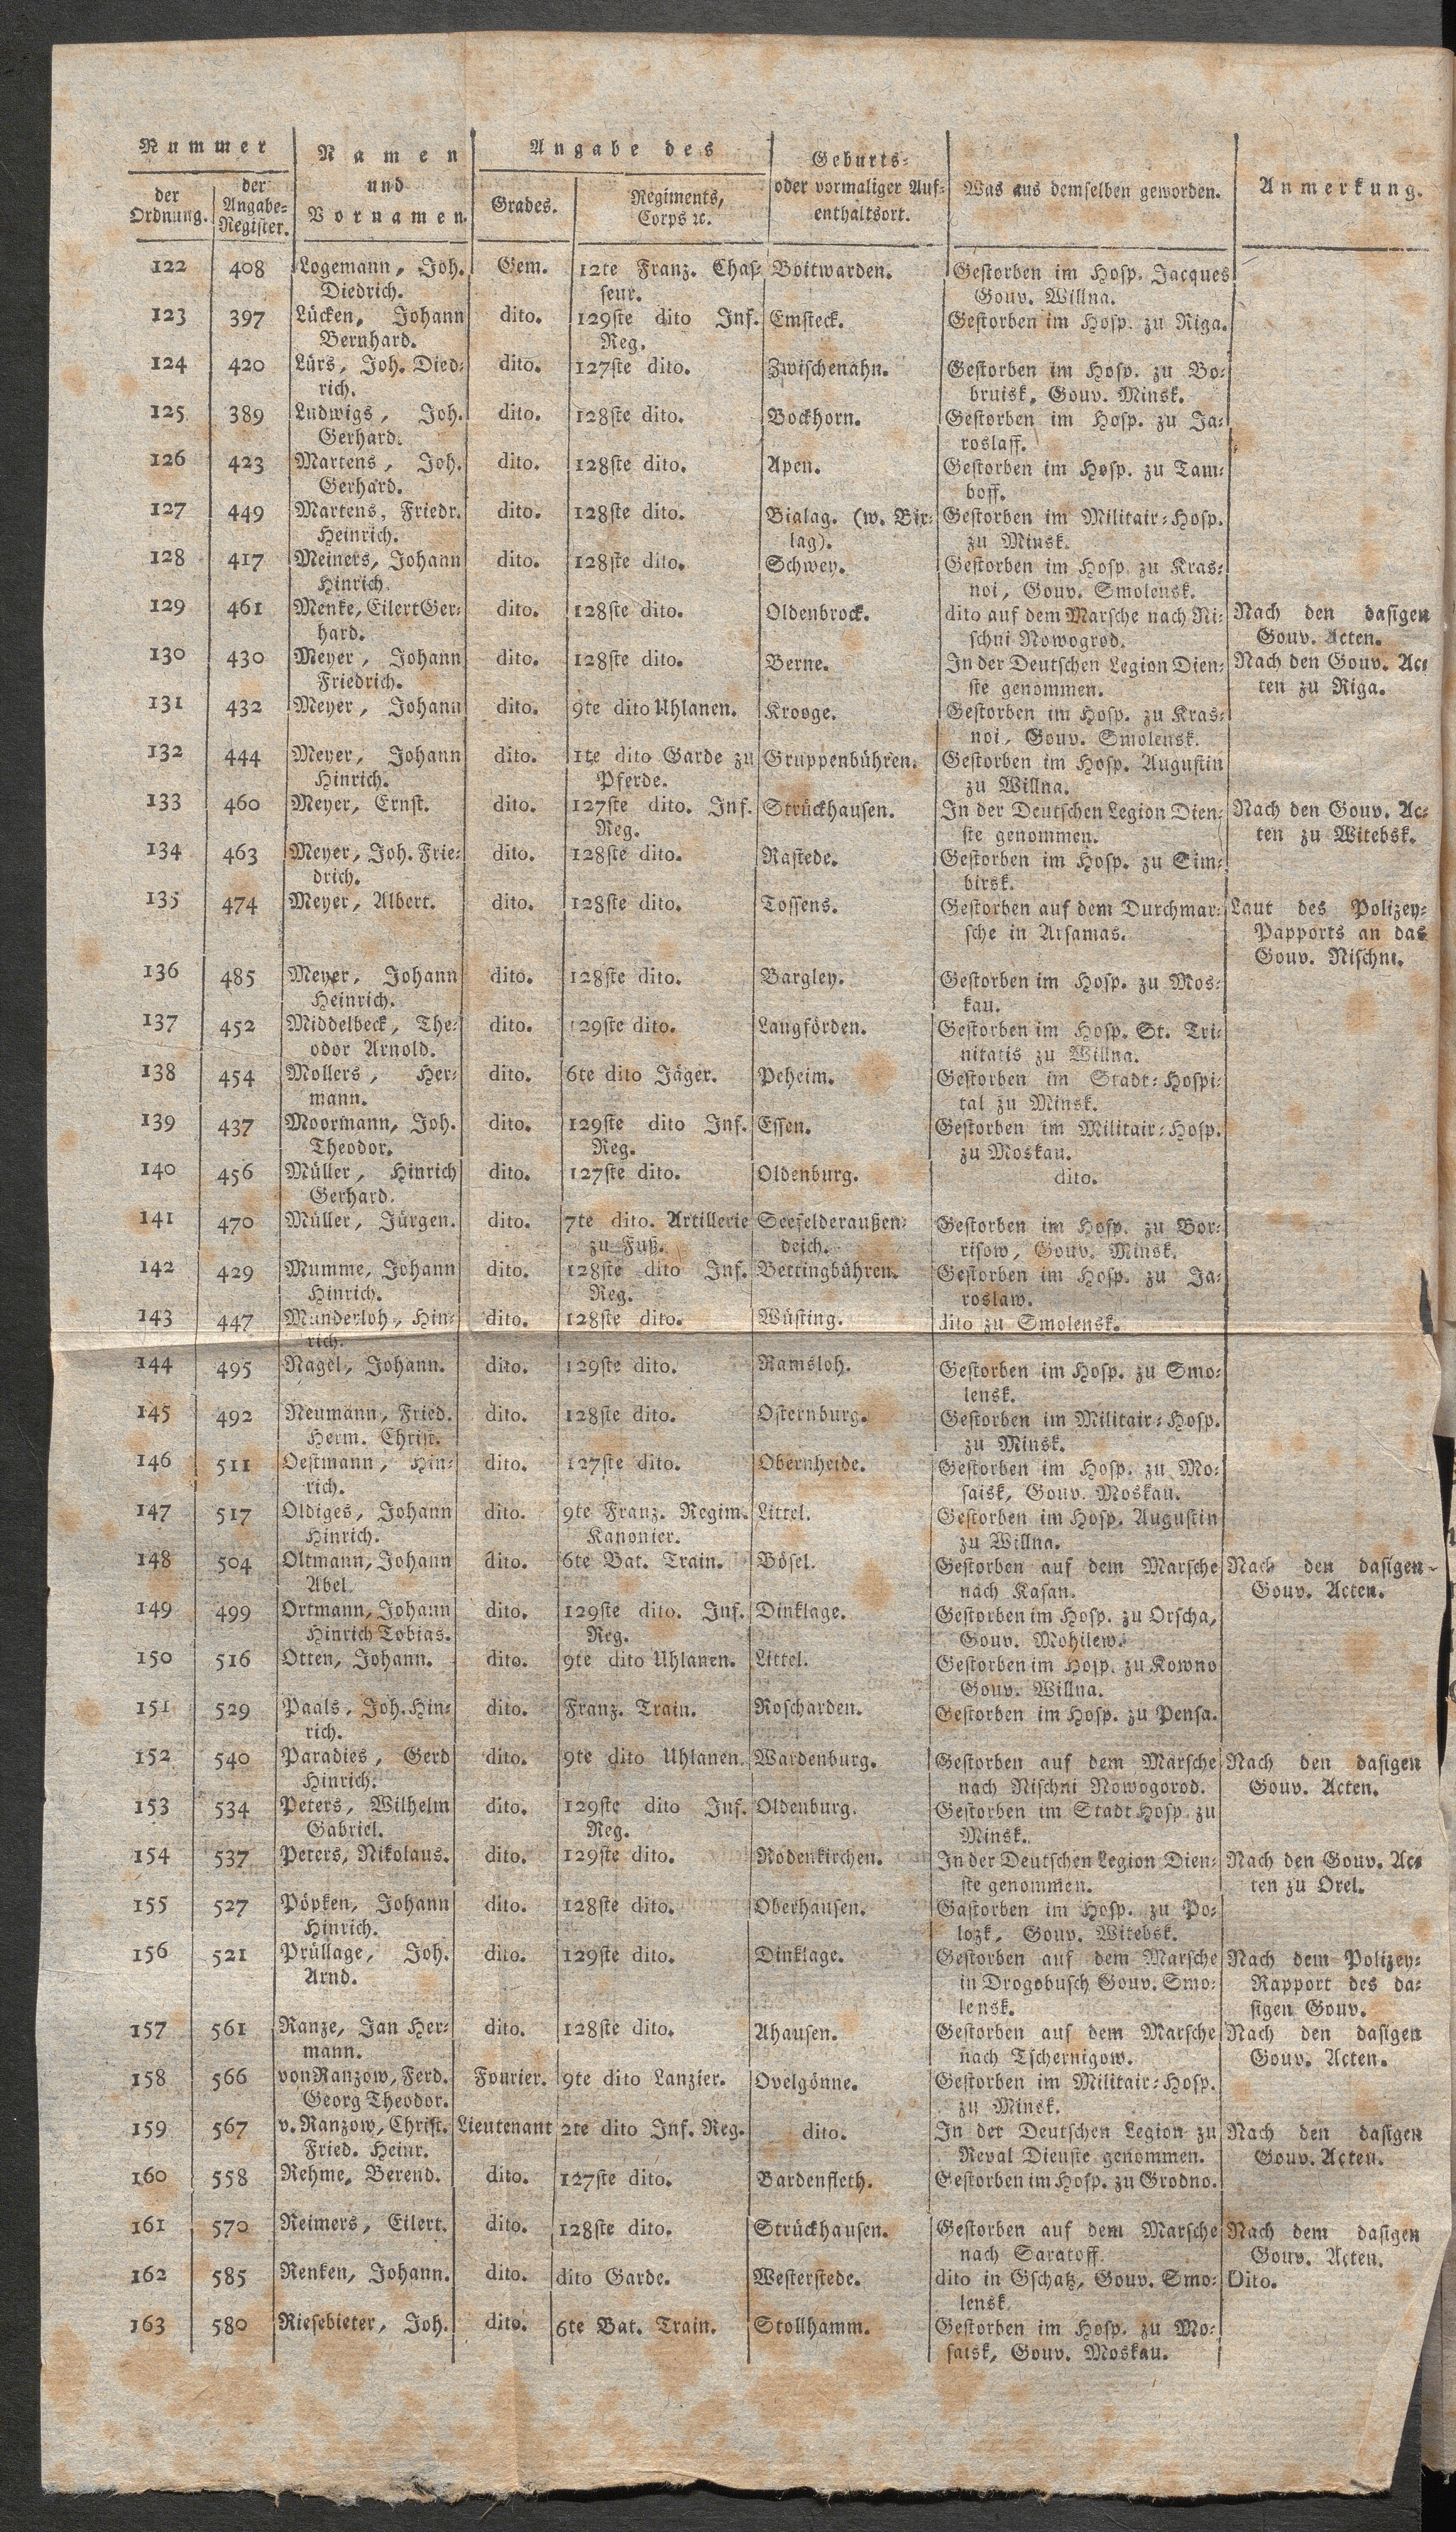 Nummer | Namen und Vornamen. | Angabe des | Geburts- oder vormaliger Aufenthaltsort. | Was aus demselben geworden. | Anmerkung.
der Ordnung. | der Angabe-Register. | Grades. | Regiments, Corps ꝛc.
122 | 408 | Logemann, Joh. | Gem. | 12te Franz. Chas- | Boitwarden. | Gestorben im Hosp. Jacques
Diedrich. | seur. | Gouv. Willna.
123 | 397 | Lücken, Johann | dito. | 129ste dito Inf. | Emsteck. | Gestorben im Hosp. zu Riga.
Bernhard. | Reg.
124 | 420 | Lürs, Joh. Died- | dito. | 127ste dito. | Zwischenahn. | Gestorben im Hosp. zu Bo-
rich. | bruisk, Gouv. Minsk.
125 | 389 | Ludwigs, Joh. | dito. | 128ste dito. | Bockhorn. | Gestorben im Hosp. zu Ja-
Gerhard. | roslaff.
126 | 423 | Martens, Joh. | dito. | 128ste dito. | Apen. | Gestorben im Hosp. zu Tam-
Gerhard. | boff.
127 | 449 | Martens, Friedr. | dito. | 128ste dito. | Bialag. (w. Bir- | Gestorben im Militair-Hosp.
Heinrich. | lag). | zu Minsk.
128 | 417 | Meiners, Johann | dito. | 128ste dito. | Schwey. | Gestorben im Hosp. zu Kras-
Hinrich. | noi, Gouv. Smolensk.
129 | 461 | Menke, Eilert Ger- | dito. | 128ste dito. | Oldenbrock. | dito auf dem Marsche nach Ni- | Nach den dasigen
hard. | schni Nowogrod. | Gouv. Acten.
130 | 430 | Meyer, Johann | dito. | 128ste dito. | Berne. | In der Deutschen Legion Dien- | Nach den Gouv. Ac-
Friedrich. | ste genommen. | ten zu Riga.
131 | 432 | Meyer, Johann | dito. | 9te dito Uhlanen. | Krooge. | Gestorben im Hosp. zu Kras-
noi, Gouv. Smolensk.
132 | 444 | Meyer, Johann | dito. | 1te dito Garde zu | Gruppenbühren. | Gestorben im Hosp. Augustin
Hinrich. | Pferde. | zu Willna.
133 | 460 | Meyer, Ernst. | dito. | 127ste dito. Inf. | Strückhausen. | In der Deutschen Legion Dien- | Nach den Gouv. Ac-
Reg. | ste genommen. | ten zu Witebsk.
134 | 463 | Meyer, Joh. Frie- | dito. | 128ste dito. | Rastede. | Gestorben im Hosp. zu Sim-
drich. | birsk.
135 | 474 | Meyer, Albert. | dito. | 128ste dito. | Tossens. | Gestorben auf dem Durchmar- | Laut des Polizey-
sche in Arsamas. | Papports an das
Gouv. Nischni.
136 | 485 | Meyer, Johann | dito. | 128ste dito. | Bargley. | Gestorben im Hosp. zu Mos-
Heinrich. | kau.
137 | 452 | Middelbeck, The- | dito. | 129ste dito. | Langförden. | Gestorben im Hosp. St. Tri-
odor Arnold. | nitatis zu Willna.
138 | 454 | Mollers, Her- | dito. | 6te dito Jäger. | Peheim. | Gestorben im Stadt-Hospi-
mann. | tal zu Minsk.
139 | 437 | Moormann, Joh. | dito. | 129ste dito Inf. | Essen. | Gestorben im Militair-Hosp.
Theodor. | Reg. | zu Moskau.
140 | 456 | Müller, Hinrich | dito. | 127ste dito. | Oldenburg. | dito.
Gerhard.
141 | 470 | Müller, Jürgen. | dito. | 7te dito. Artillerie | Seefelderaußen- | Gestorben im Hosp. zu Bor-
zu Fuß. | deich. | risow, Gouv. Minsk.
142 | 429 | Mumme, Johann | dito. | 128ste dito Inf. | Bettingbühren. | Gestorben im Hosp. zu Ja-
Hinrich. | Reg. | roslaw.
143 | 447 | Munderloh, Hin- | dito. | 128ste dito. | Wüsting. | dito zu Smolensk.
rich.
144 | 495 | Nagel, Johann. | dito. | 129ste dito. | Ramsloh. | Gestorben im Hosp. zu Smo-
lensk.
145 | 492 | Neumann, Fried. | dito. | 128ste dito. | Osternburg. | Gestorben im Militair-Hosp.
Herm. Christ. | zu Minsk.
146 | 511 | Oestmann, Hin- | dito. | 127ste dito. | Obernheide. | Gestorben im Hosp. zu Mo-
rich. | saisk, Gouv. Moskau.
147 | 517 | Oldiges, Johann | dito. | 9te Franz. Regim. | Littel. | Gestorben im Hosp. Augustin
Hinrich. | Kanonier. | zu Willna.
148 | 504 | Oltmann, Johann | dito. | 6te Bat. Train. | Bösel. | Gestorben auf dem Marsche | Nach den dasigen
Abel. | nach Kasan. | Gouv. Acten.
149 | 499 | Ortmann, Johann | dito. | 129ste dito. Inf. | Dinklage. | Gestorben im Hosp. zu Orscha,
Hinrich Tobias. | Reg. | Gouv. Mohilew.
150 | 516 | Otten, Johann. | dito. | 9te dito Uhlanen. | Littel. | Gestorben im Hosp. zu Kowno
Gouv. Willna.
151 | 529 | Paals, Joh. Hin- | dito. | Franz. Train. | Roscharden. | Gestorben im Hosp. zu Pensa.
rich.
152 | 540 | Paradies, Gerd | dito. | 9te dito Uhlanen. | Wardenburg. | Gestorben auf dem Marsche | Nach den dasigen
Hinrich. | nach Nischni Nowogorod. | Gouv. Acten.
153 | 534 | Peters, Wilhelm | dito. | 129ste dito Inf. | Oldenburg. | Gestorben im Stadt Hosp. zu
Gabriel. | Reg. | Minsk.
154 | 537 | Peters, Nikolaus. | dito. | 129ste dito. | Rodenkirchen. | In der Deutschen Legion Dien- | Nach den Gouv. Ac-
ste genommen. | ten zu Orel.
155 | 527 | Pöpken, Johann | dito. | 128ste dito. | Oberhausen. | Gastorben im Hosp. zu Po-
Hinrich. | lozk, Gouv. Witebsk.
156 | 521 | Prüllage, Joh. | dito. | 129ste dito. | Dinklage. | Gestorben auf dem Marsche | Nach dem Polizey-
Arnd. | in Drogobusch Gouv. Smo- | Rapport des da-
lensk. | sigen Gouv.
157 | 561 | Ranze, Jan Her- | dito. | 128ste dito. | Ahausen. | Gestorben auf dem Marsche | Nach den dasigen
mann. | nach Tschernigow. | Gouv. Acten.
158 | 566 | von Ranzow, Ferd. | Fourier. | 9te dito Lanzier. | Ovelgönne. | Gestorben im Militair-Hosp.
Georg Theodor. | zu Minsk.
159 | 567 | v. Ranzow, Christ. | Lieutenant | 2te dito Inf. Reg. | dito. | In der Deutschen Legion zu | Nach den dasigen
Fried. Heinr. | Reval Dienste genommen. | Gouv. Acten.
160 | 558 | Rehme, Berend. | dito. | 127ste dito. | Bardenfleth. | Gestorben im Hosp. zu Grodno.
161 | 570 | Reimers, Eilert. | dito. | 128ste dito. | Strückhausen. | Gestorben auf dem Marsche | Nach dem dasigen
nach Saratoff. | Gouv. Acten.
162 | 585 | Renken, Johann. | dito. | dito Garde. | Westerstede. | dito in Gschatz, Gouv. Smo- | Dito.
lensk.
163 | 580 | Riesebieter, Joh. | dito. | 6te Bat. Train. | Stollhamm. | Gestorben im Hosp. zu Mo-
saisk, Gouv. Moskau.